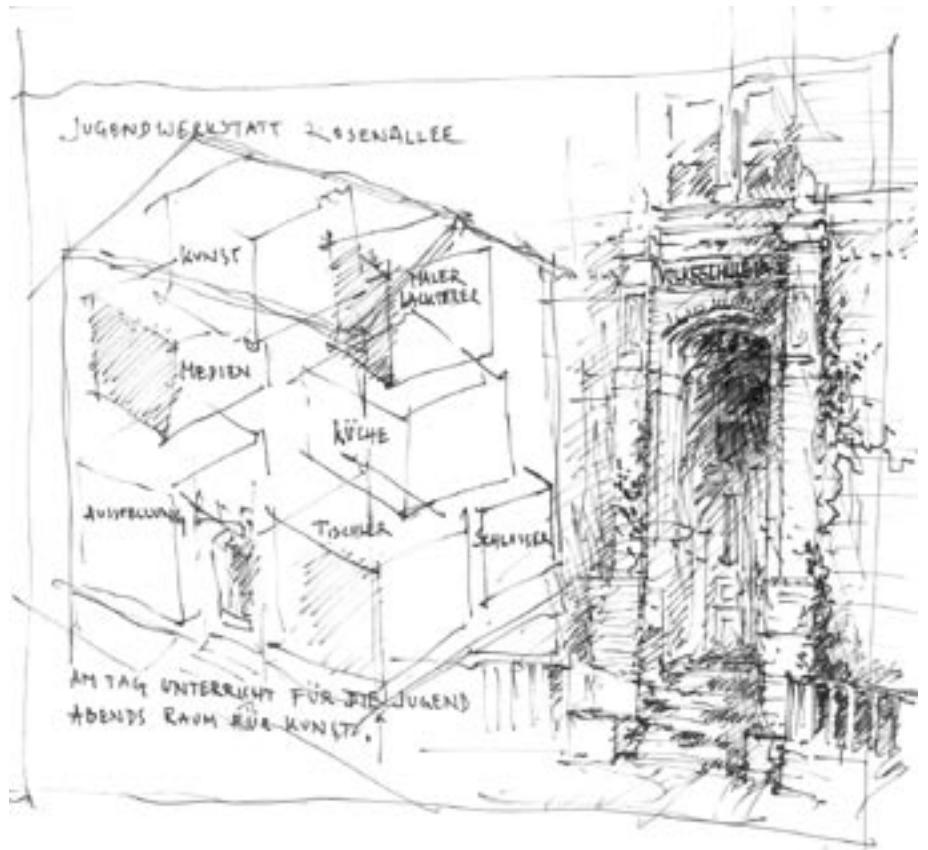 JUGENDWERKSTATT ROSENALLEE
KUNST
MALER
LACKIERER
MEDIEN
KÜCHE
AUSSTELLUNG
TISCHLER
SCHLOSSER
AM TAG UNTERRICHT FÜR DIE JUGEND
ABENDS RAUM FÜR KUNST.